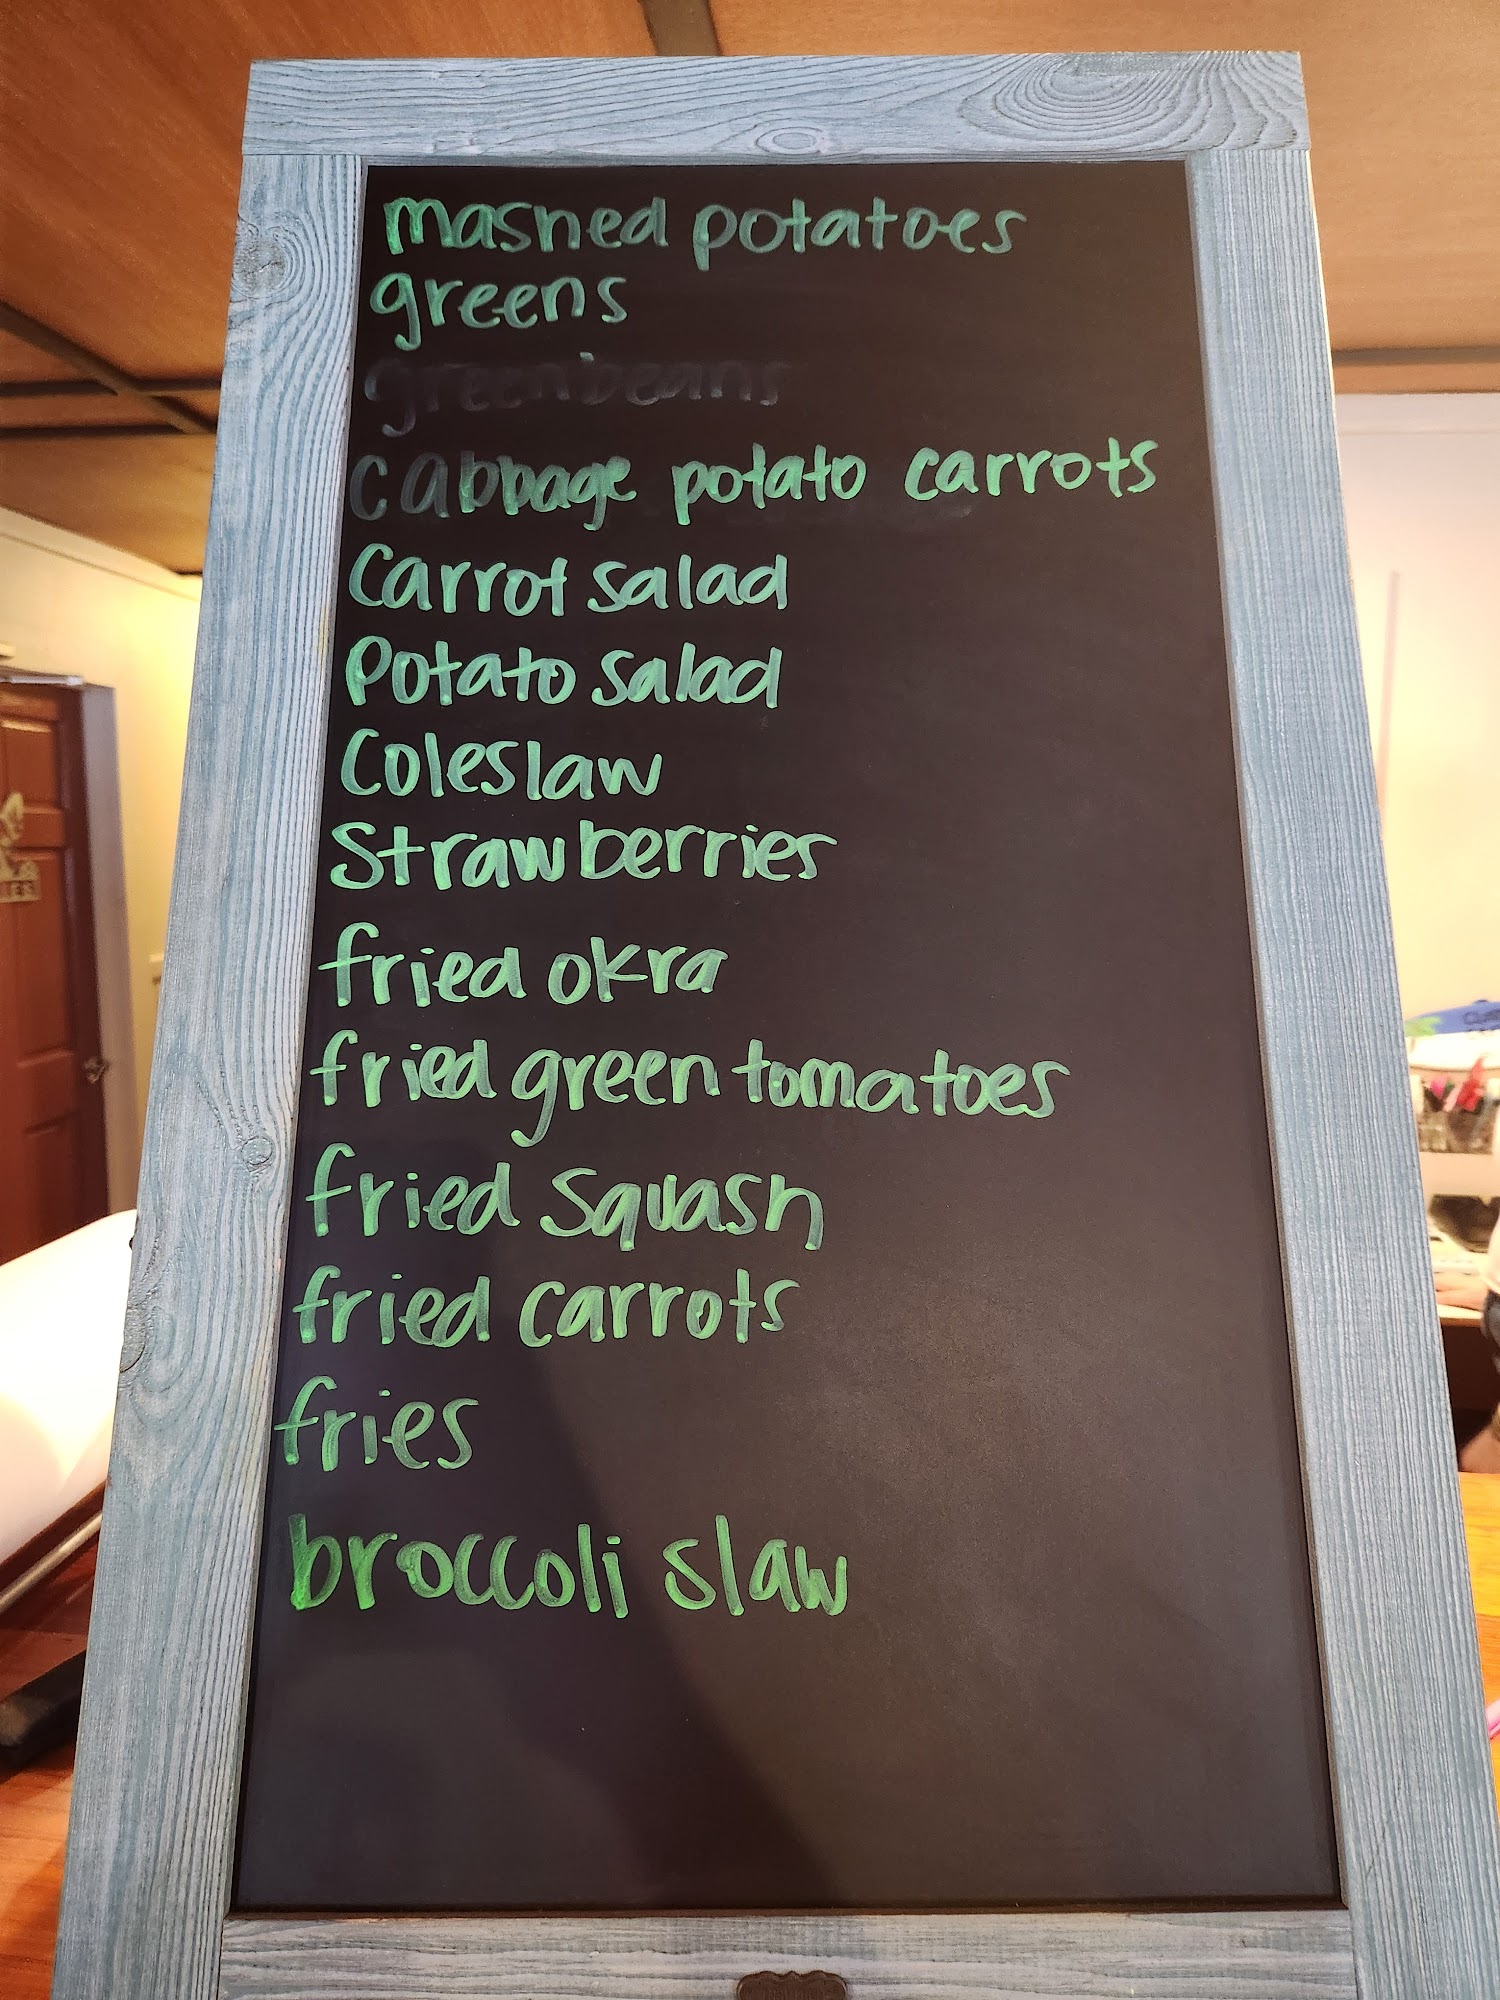 mashed potatoes
greens
greenbeans
cabbage potato carrots
Carrot salad
Potato salad
Coleslaw
Strawberries
fried okra
fried green tomatoes
fried squash
fried carrots
fries
broccoli slaw